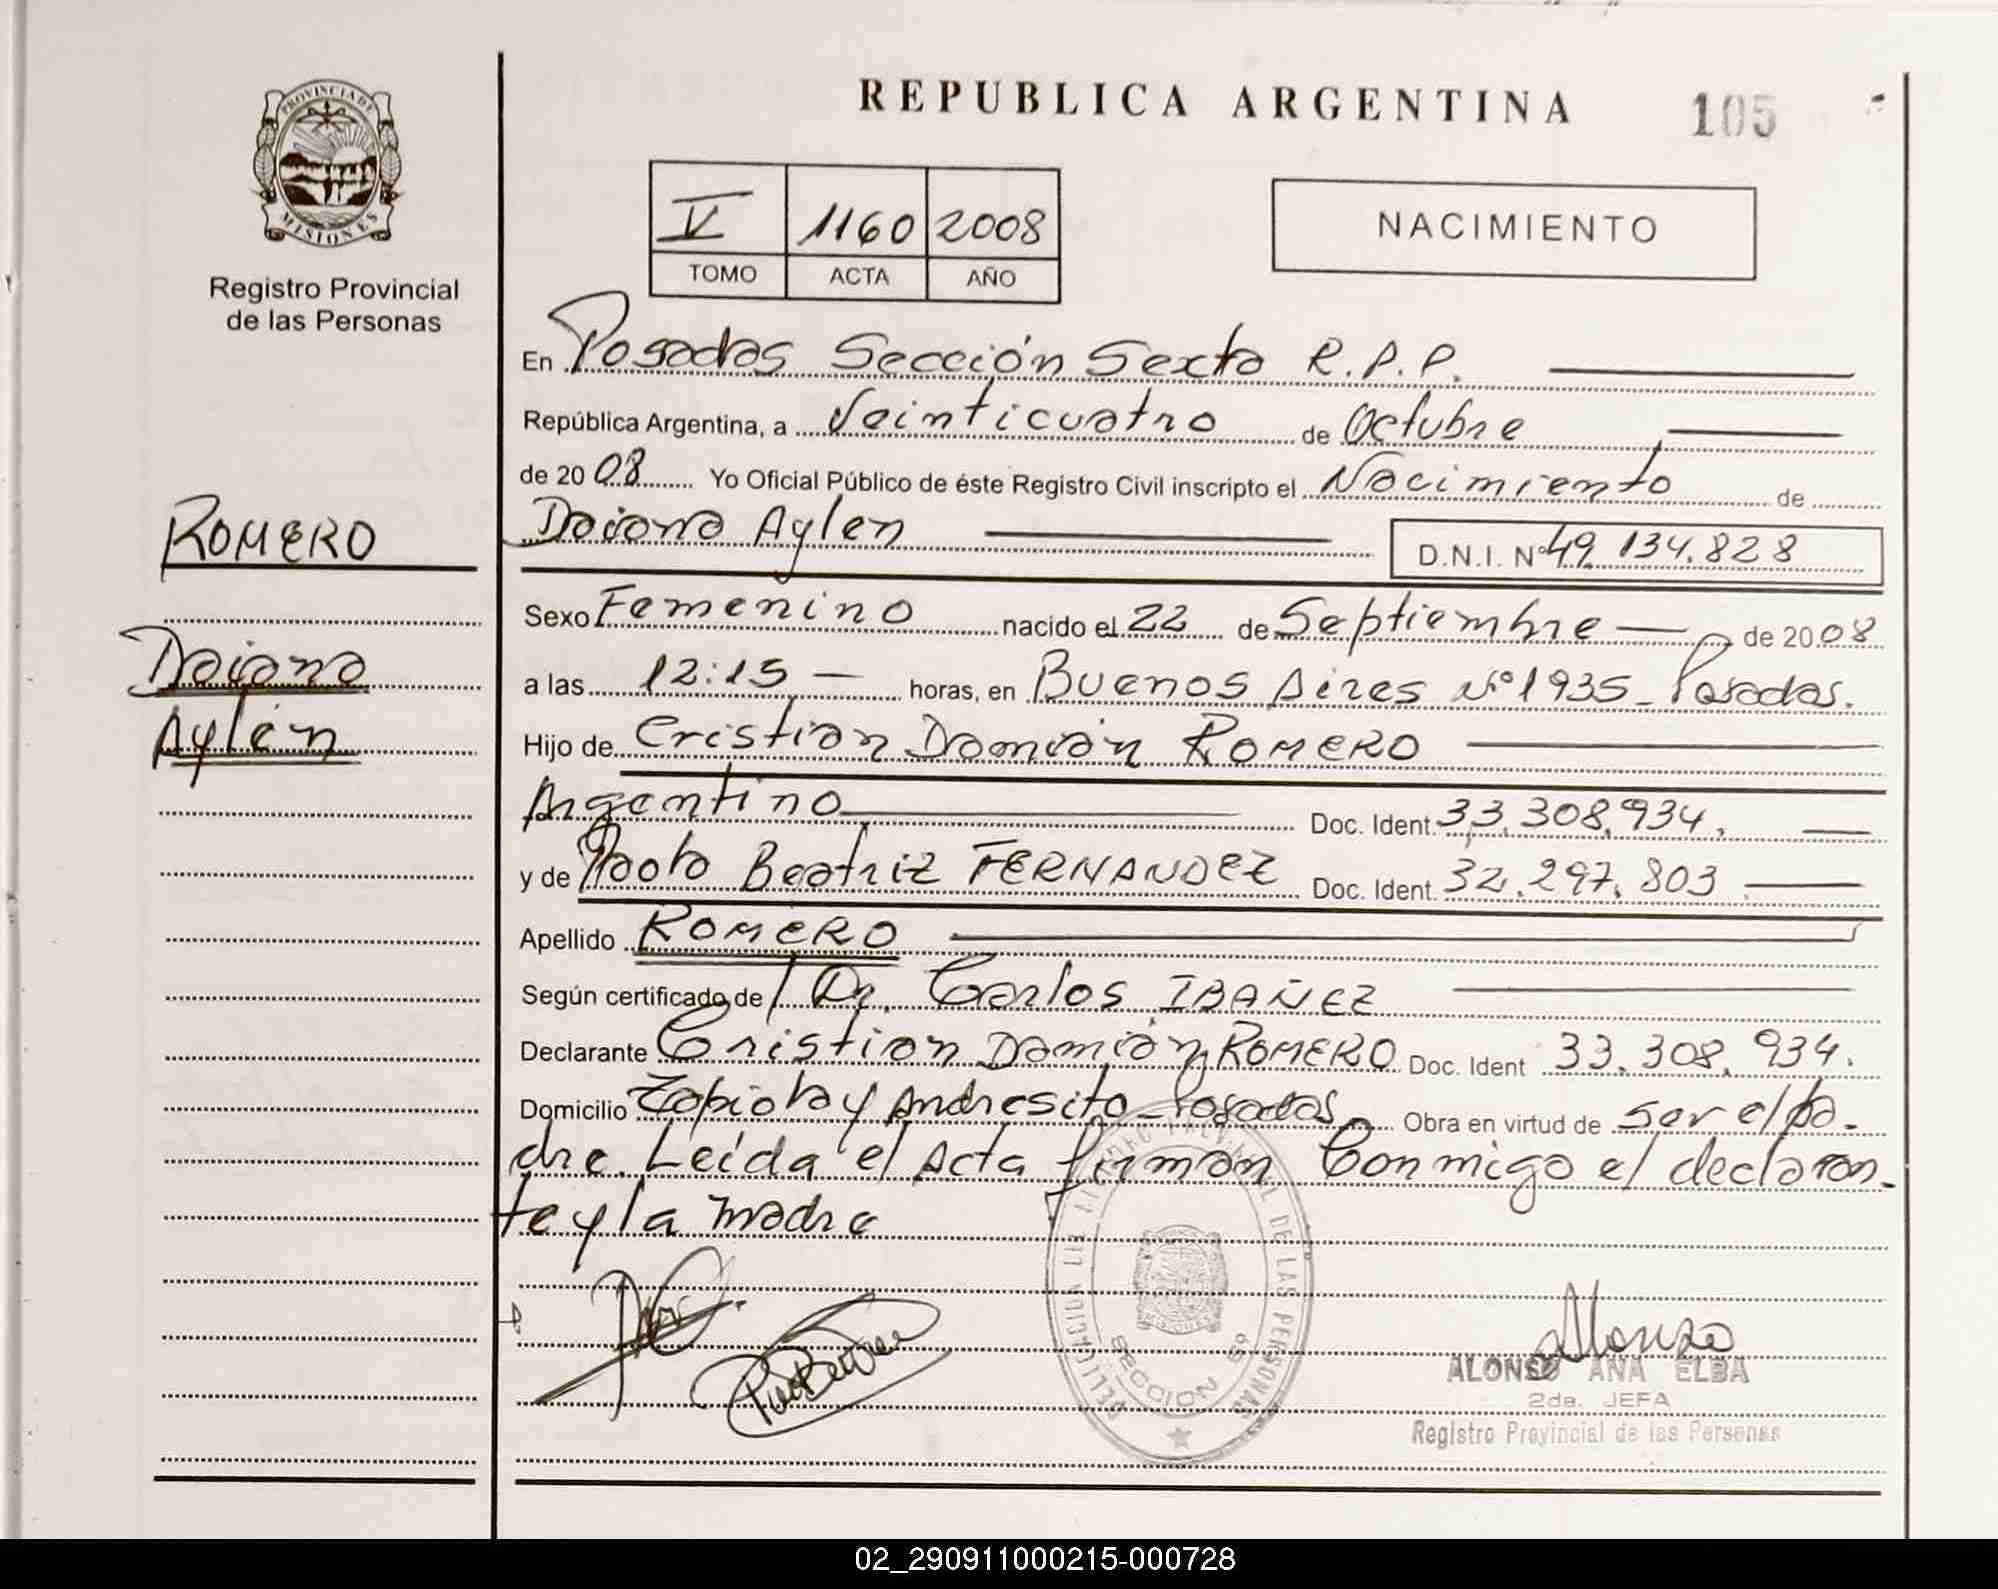 PROVINCIA DE
MISIONES
Registro Provincial
de las Personas
REPUBLICA ARGENTINA 105
V 1160 2008
TOMO ACTA AÑO
NACIMIENTO
En Posadas Sección Sexta R.P.P.
República Argentina, a Veinticuatro de Octubre
de 2008 Yo Oficial Público de éste Registro Civil inscripto el Nacimiento de
Daiana Aylen D.N.I. Nº 49.134.828
ROMERO
Daiana
Aylén
Sexo Femenino nacido el 22 de Septiembre de 2008
a las 12:15 horas, en Buenos Aires Nº 1935 - Posadas.
Hijo de Cristian Damián ROMERO
Argentino Doc. Ident. 33.308.934.
y de Paola Beatriz FERNANDEZ Doc. Ident. 32.297.803
Apellido ROMERO
Según certificado de Dr. Carlos IBAÑEZ
Declarante Cristian Damián ROMERO Doc. Ident 33.308.934.
Domicilio Zapiola y Andresito - Posadas Obra en virtud de ser el pa-
dre. Leída el Acta firman Conmigo el declaran-
te y la madre
PROVINCIAL DE LAS PERSONAS
SECCION
MISIONES
Alonso
ALONSO ANA ELBA
2da. JEFA
Registro Provincial de las Personas
02_290911000215-000728